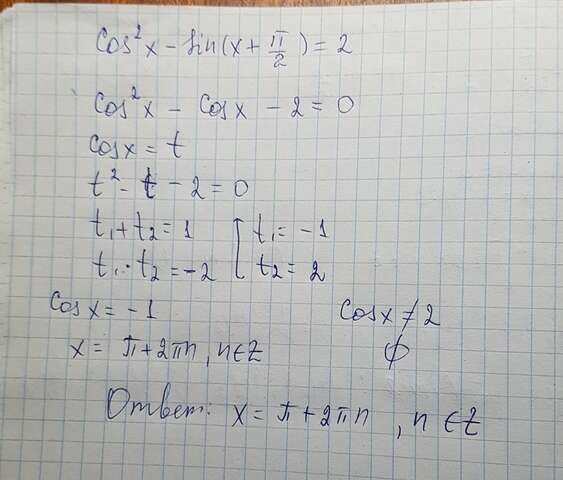 cos²x - sin(x + π/2) = 2
cos²x - cosx - 2 = 0
cosx = t
t² - t - 2 = 0
t₁ + t₂ = 1 [ t₁ = -1
t₁ · t₂ = -2 [ t₂ = 2
cosx = -1 cosx ≠ 2
x = π + 2πn, n∈Z ∅
Ответ: x = π + 2πn, n∈Z